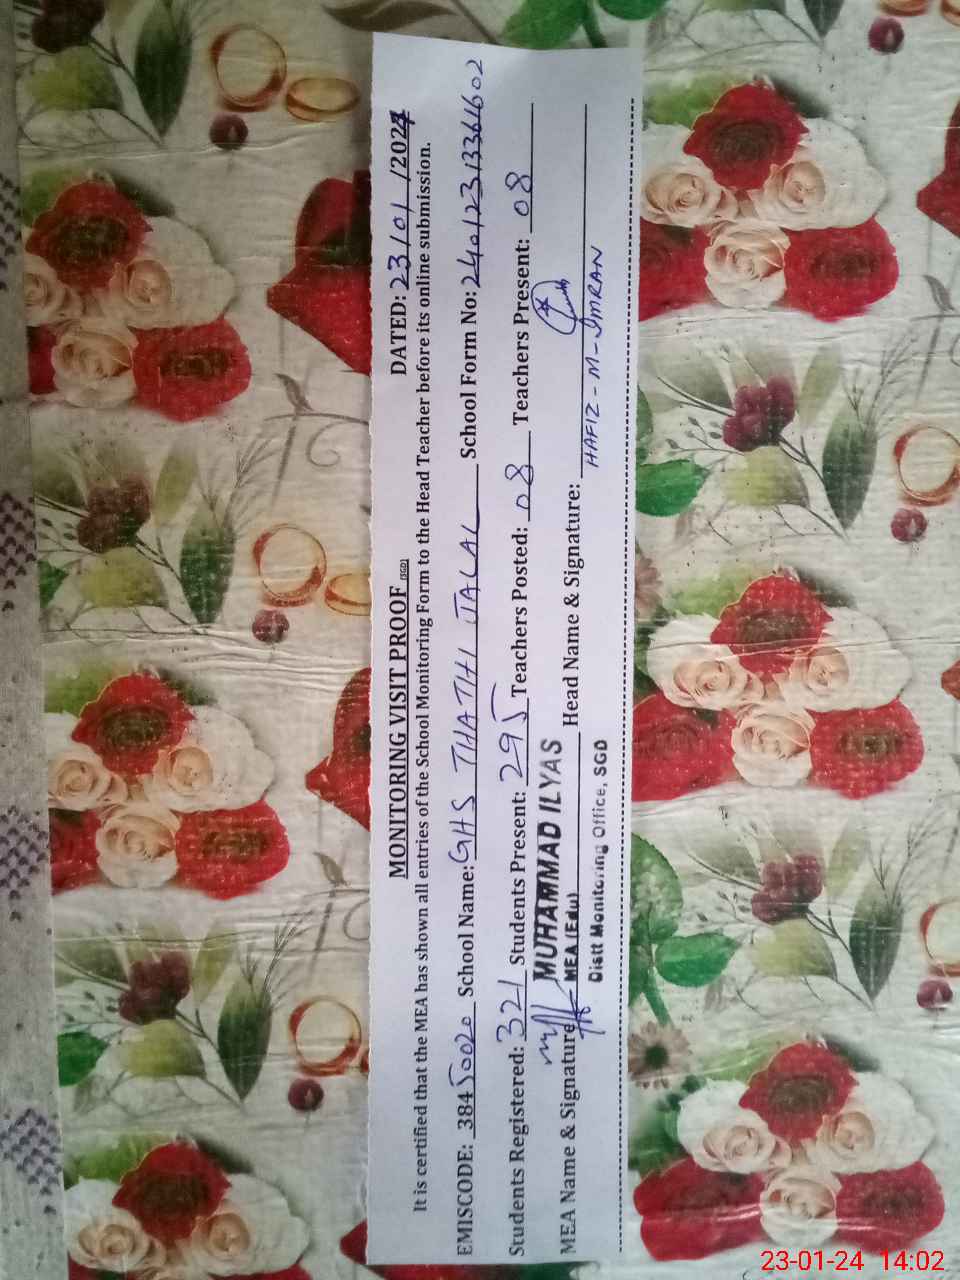 MONITORING VISIT PROOF (SGD) DATED: 23/01/2024
It is certified that the MEA has shown all entries of the School Monitoring Form to the Head Teacher before its online submission.
EMISCODE: 38450020 School Name: GHS THATHI JALAL School Form No: 24012313361602
Students Registered: 321 Students Present: 295 Teachers Posted: 08 Teachers Present: 08
MEA Name & Signature MUHAMMAD ILYAS Head Name & Signature:
MEA (Edu) HAFIZ-M-IMRAN
Distt Monitoring Office, SGD
23-01-24 14:02